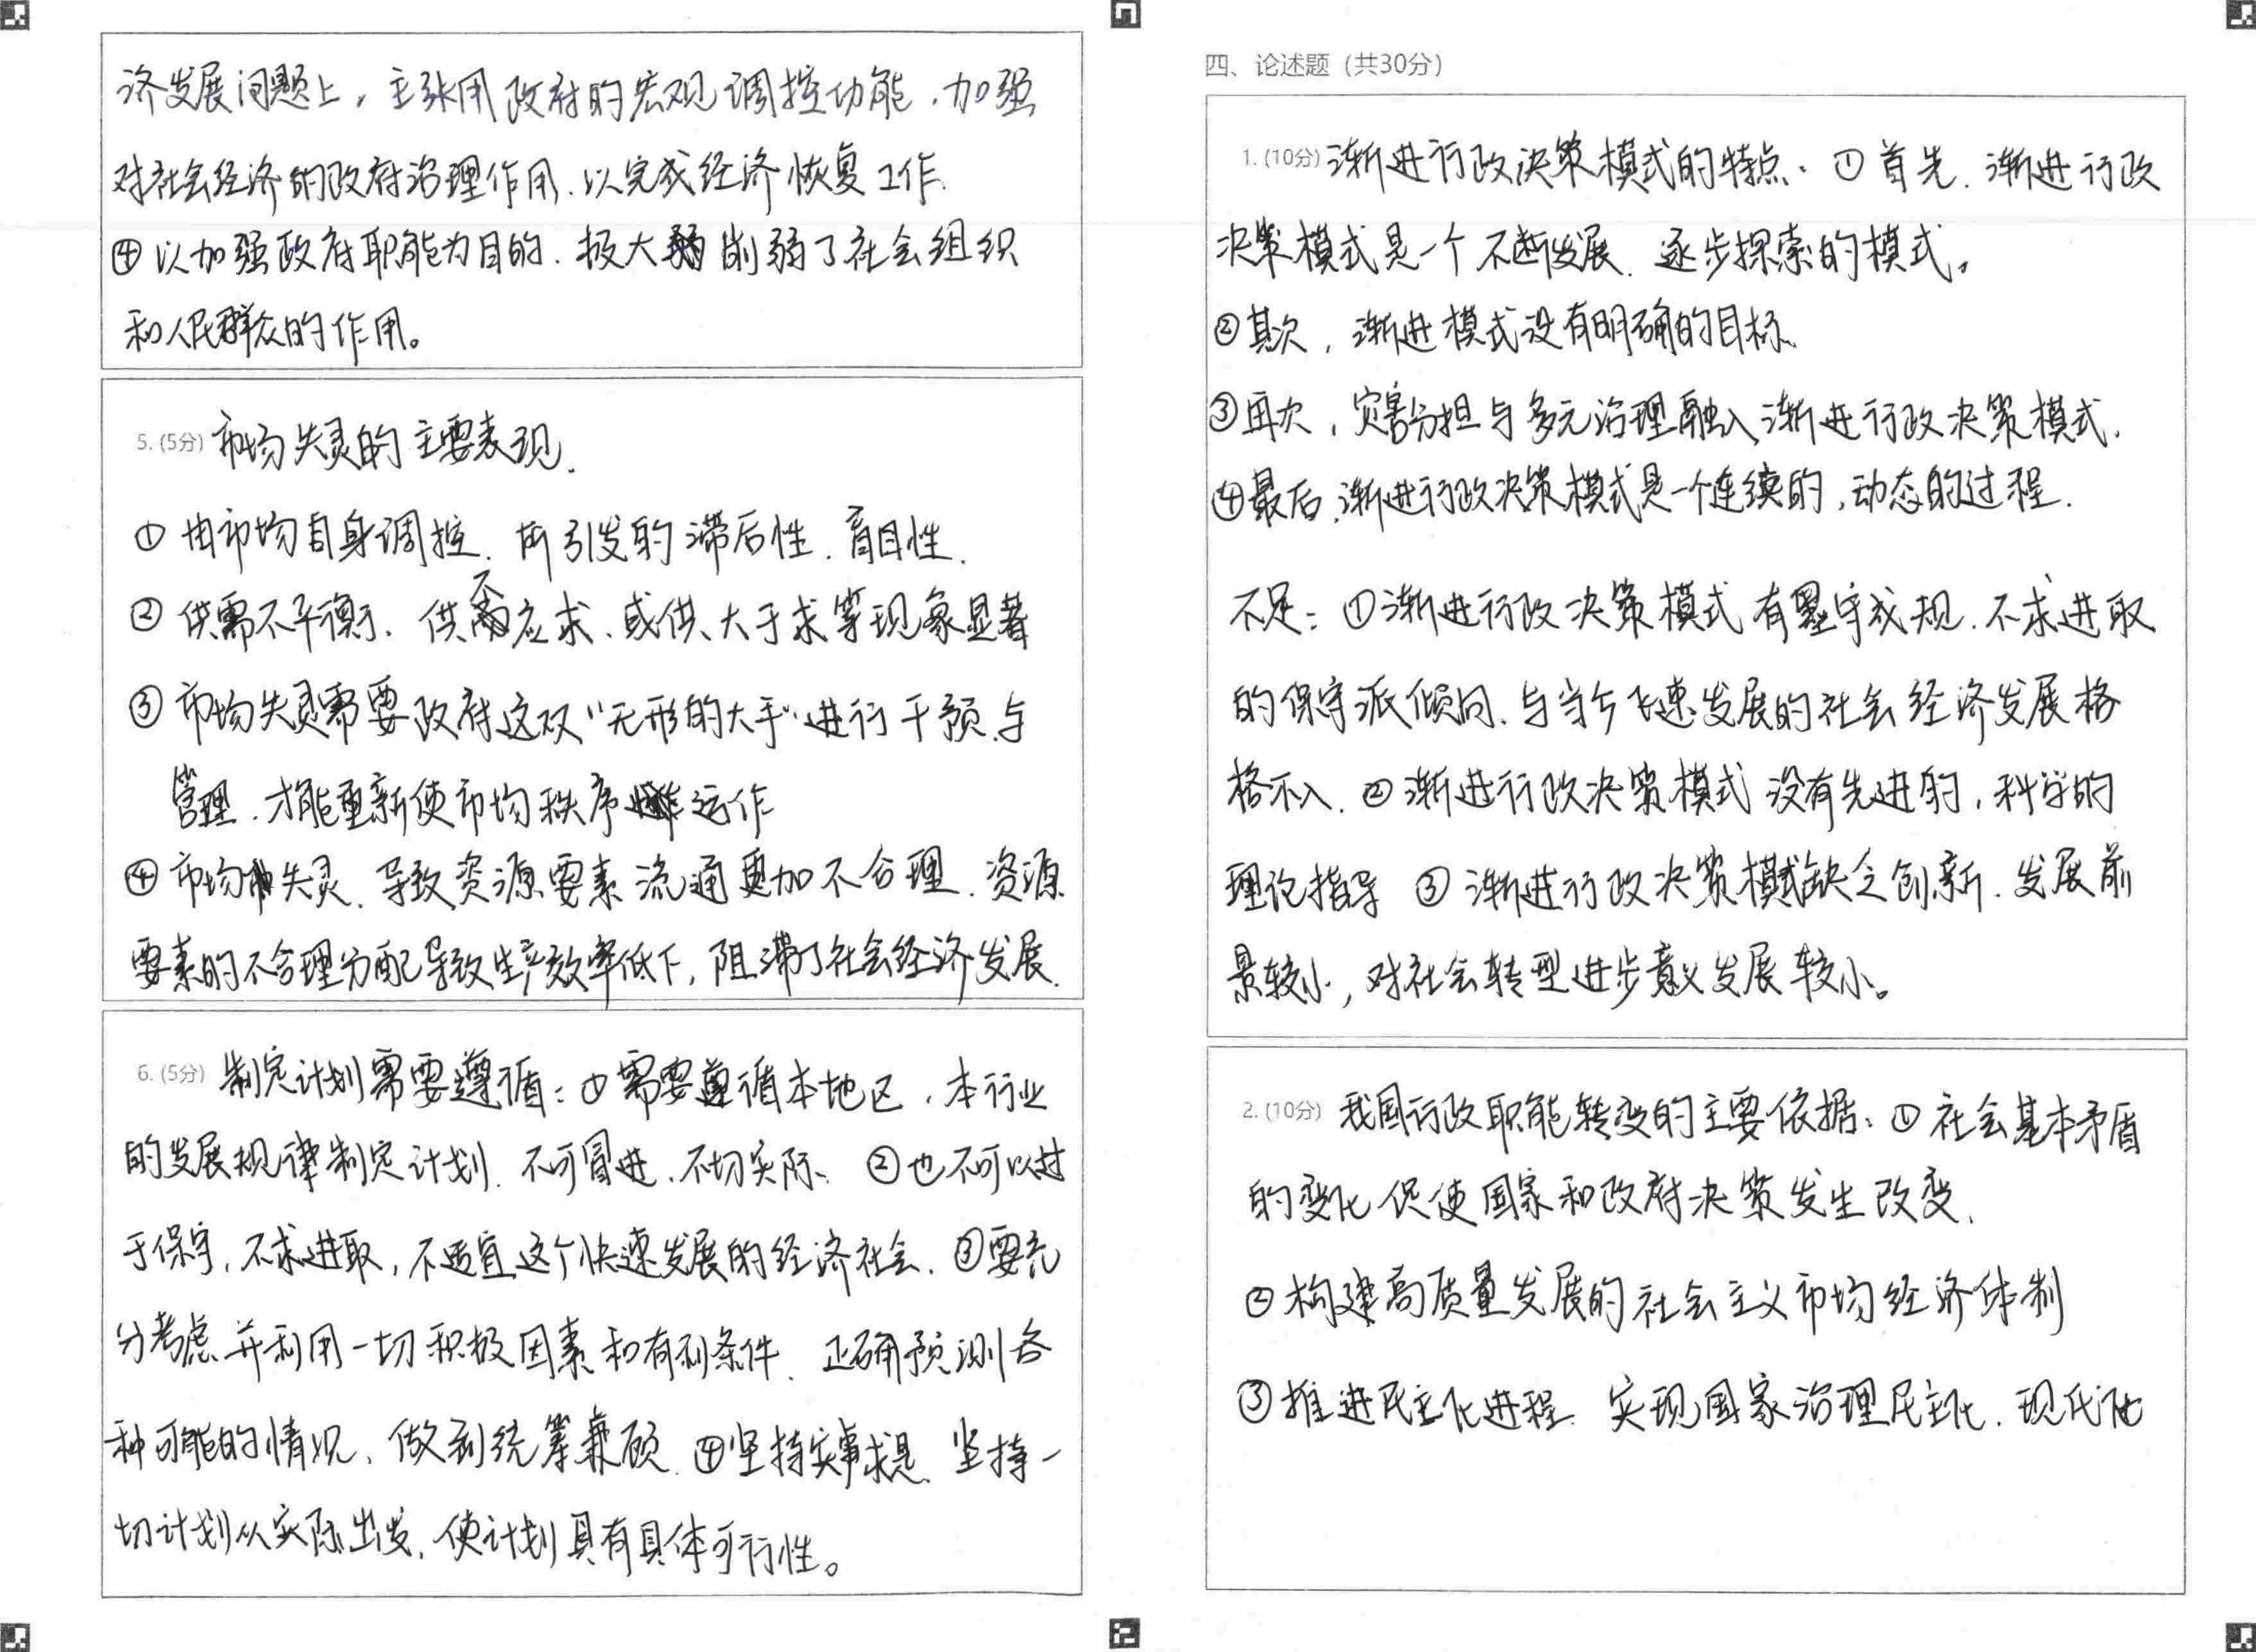 济发展问题上，主张用政府的宏观调控功能，加强
对社会经济的政府治理作用，以完成经济恢复工作.
④以加强政府职能为目的.极大削弱了社会组织
和人民群众的作用。
5. (5分) 市场失灵的主要表现.
① 由市场自身调控.所引发的滞后性.盲目性.
② 供需不平衡、供不应求、或供大于求等现象显著
③ 市场失灵需要政府这双“无形的大手”进行干预.与
管理.才能重新使市场秩序运作
④ 市场失灵.导致资源要素流通更加不合理.资源
要素的不合理分配导致生产效率低下，阻滞了社会经济发展.
6. (5分) 制定计划需要遵循：①需要遵循本地区、本行业
的发展规律制定计划.不可冒进.不切实际、②也不可以过
于保守，不求进取，不适宜这个快速发展的经济社会.③要充
分考虑并利用一切积极因素和有利条件.正确预测各
种可能的情况、做到统筹兼顾.④坚持实事求是.坚持一
切计划从实际出发，使计划具有具体可行性。
四、论述题（共30分）
1. (10分) 渐进行政决策模式的特点：①首先.渐进行政
决策模式是一个不断发展.逐步探索的模式。
②其次，渐进模式没有明确的目标.
③再次，灾害分担与多元治理融入渐进行政决策模式.
④最后.渐进行政决策模式是一个连续的，动态的过程.
不足：①渐进行政决策模式有墨守成规.不求进取
的保守派倾向.与当今飞速发展的社会经济发展格
格不入.②渐进行政决策模式没有先进的，科学的
理论指导 ③渐进行政决策模式缺乏创新.发展前
景较小，对社会转型进步意义发展较小。
2. (10分) 我国行政职能转变的主要依据：①社会基本矛盾
的变化促使国家和政府决策发生改变.
②构建高质量发展的社会主义市场经济体制
③推进民主化进程.实现国家治理民主化.现代化